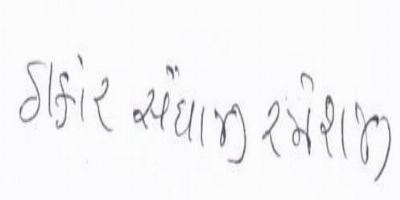 ઠાકોર સેંધાજી રમેશજી